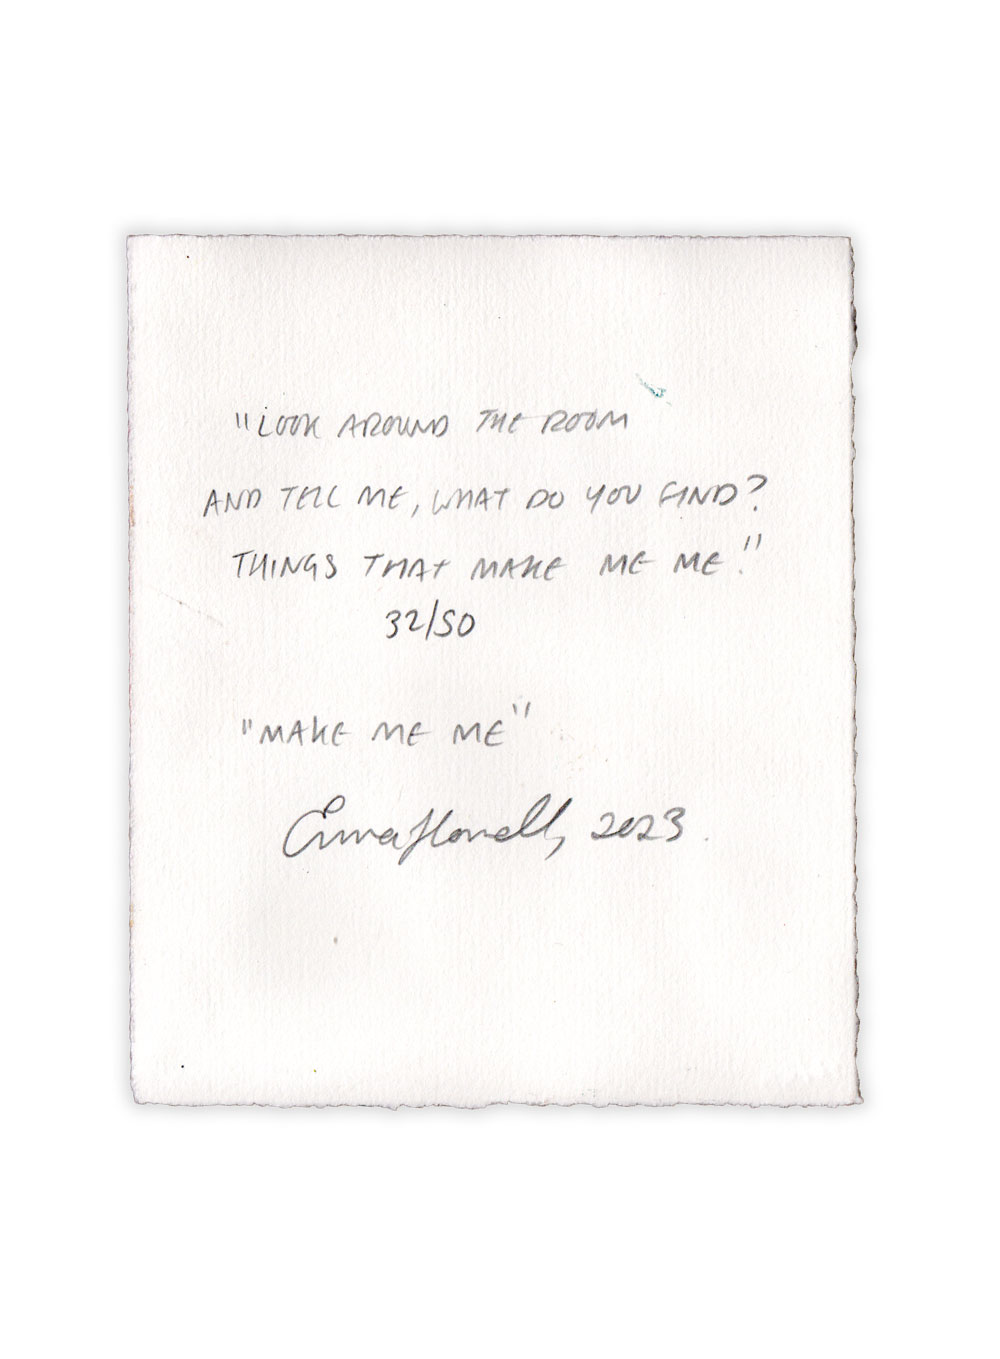 "LOOK AROUND THE ROOM
AND TELL ME, WHAT DO YOU FIND?
THINGS THAT MAKE ME ME."
32/50
"MAKE ME ME"
Emma Howell, 2023.